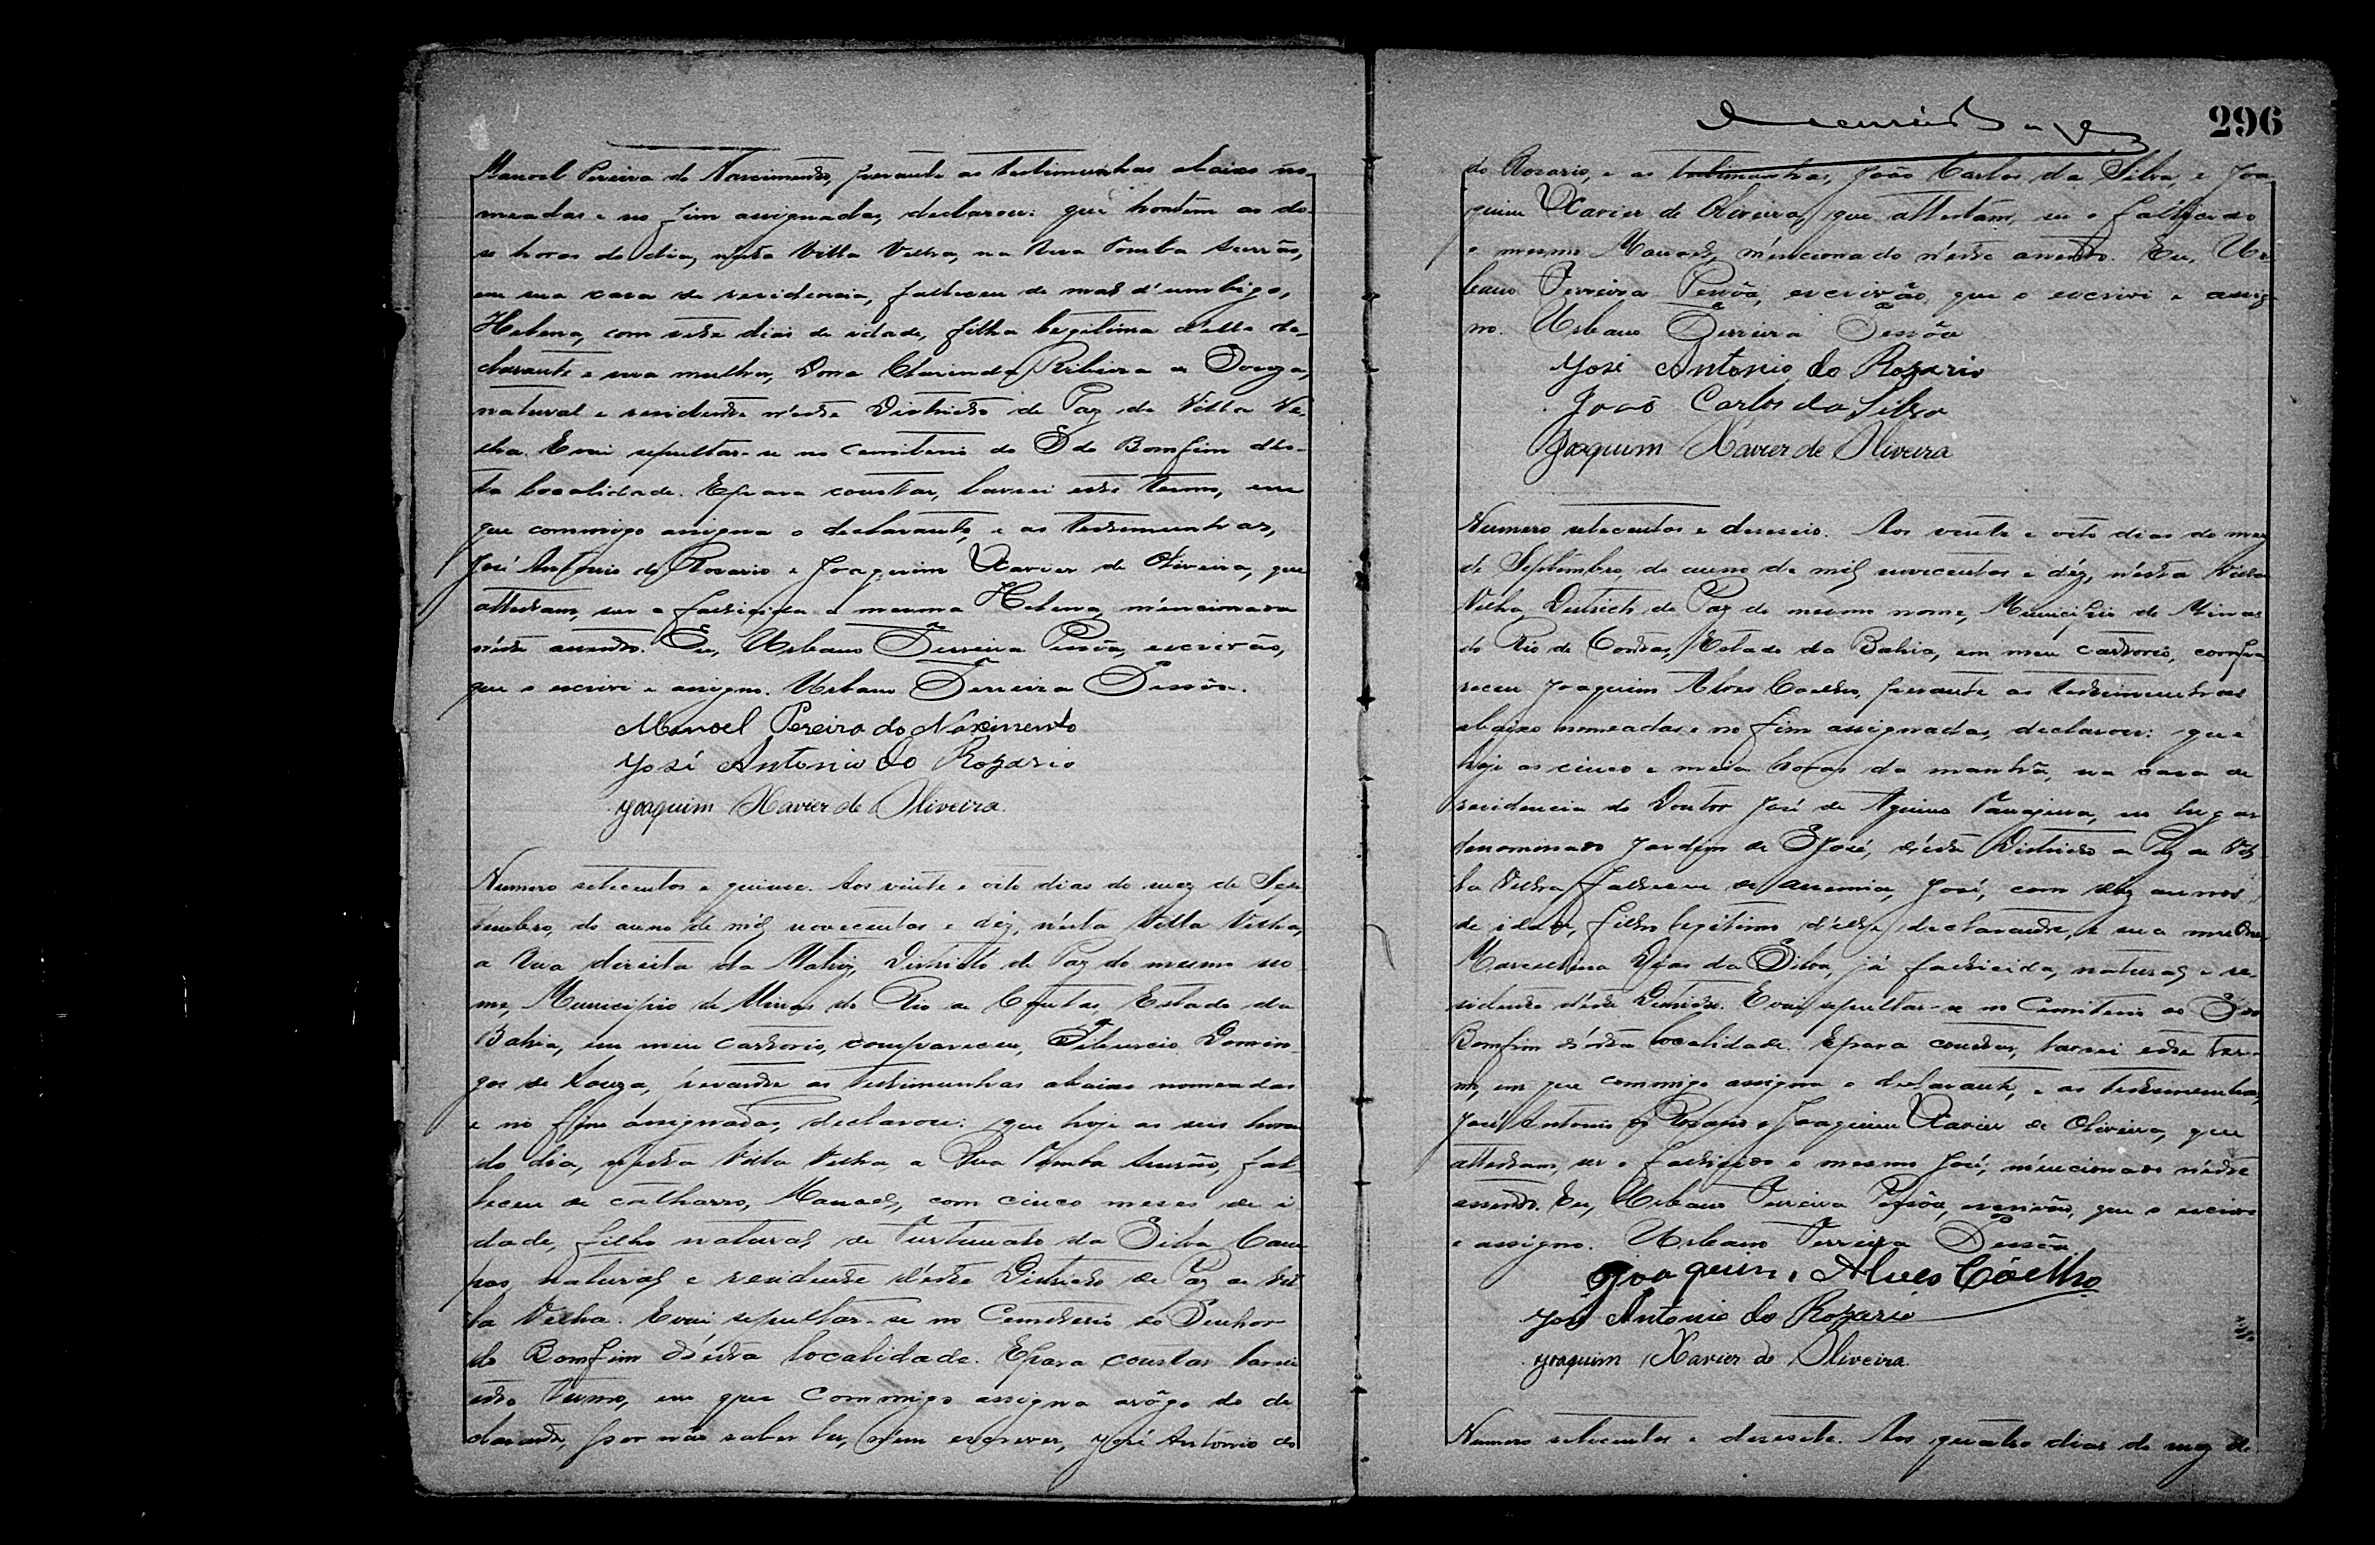 Manoel Pereira do Nascimento, perante as testimunhas abaixo no-
meadas e no fim assignadas, declarou: que hontem as do-
se horas do dia, nesta Villa Velha, na Rua Tomba Surrão,
em sua casa de residencia, falleceu de mal d'umbigo,
Helena, com sete dias de idade, filha legitima delle de-
clarante e sua mulher, Dona Clarinda Ribeira de Souza,
natural e residente n'este Districto de Paz de Villa Ve-
lha. E vai sepultar-se no cemiterio do S do Bomfim des-
ta localidade. E para constar, lavrei este termo, em
que commigo assigna o declarante, e as testemunhas,
José Antonio do Rosario e Joaquim Xavier de Oliveira, que
attestam, ser a fallecida a mesma Helena, mencionada
n'este assento. Eu, Urbano Ferreira Pessôa, escrivão,
que o escrivi e assigno. Urbano Ferreira Pessôa.
Manoel Pereira do Nascimento
José Antonio do Rozario
Joaquim Xavier de Oliveira.
Numero setecentos e quinse. Aos vinte e oito dias do mez de Sep-
tembro, do anno de mil novecentos e déz, n'esta Villa Velha,
a Rua direita da Matriz, Districto de Paz do mesmo no-
me, Municipio de Minas do Rio de Contas, Estado da
Bahia, em meu cartorio, compareceu, Tiburcio Domin-
gos de Souza, perante as testimunhas abaixo nomeadas
e no fim assignadas, declarou: que hoje as seis horas
do dia, nesta Villa Velha a Rua Tomba Surrão, fal-
leceu de catharro, Manoel, com cinco meses de i
dade, filho natural de Furtunato da Silva Cam
pos, natural e residente n'este Districto de Paz de Vil
la Velha. E vai sepultar-se no Cemiterio do Senhor
do Bomfim d'ésta localidade. E para constar lavrei
este termo, em que commigo assigna arôgo do de
clarante, por não saber ler, nem escrever, José Antonio do
296
do Rosario, e as testimunhas, João Carlos da Silva, e Joa
quim Xavier de Oliveira, que attestam, ser o fallecido
o mesmo Manoel, mencionado n'este assento. Eu, Ur
bano Ferreira Pessôa, escrivão, que o escrivi e assig
no. Urbano Ferreira Pessôa
José Antonio do Rozario
João Carlos da Silva
Joaquim Xavier de Oliveira
Numero setecentos e deseseis. Aos vinte e oito dias do mez
de Septembro, do anno de mil novecentos e déz, n'esta Villa
Velha, Districto de Paz do mesmo nome, Municipio de Minas
do Rio de Contas, Estado da Bahia, em meu cartorio, compa
receu Joaquim Alves Coelho, perante as testimunhas
abaixo nomeadas e no fim assignadas, declarou: que
hoje as cinco e meia horas da manhã, na casa de
residencia do Doutor José de Aquino Tanajura, no lugar
denominado Jardim de S José, d'este Districto de Paz de Vil
la Velha, falleceu de anemia, José, com dez annos
de idade, filho legitimo d'elle declarante, e sua mulher
Marcelina Dias da Silva, já fallecida, natural e re-
sidente n'este Districto. E vai sepultar-se no Cemiterio do S do
Bomfim d'esta localidade. E para constar, lavrei este ter-
mo, em que commigo assigna o declarante, e as testimunhas,
José Antonio do Rosario e Joaquim Xavier de Oliveira, que
attestam, ser o fallecido o mesmo José, mencionado n'este
assento. Eu, Urbano Ferreira Pessôa, escrivão, que o escrivi
e assigno. Urbano Ferreira Pessôa
Joaquim Alves Côelho
José Antonio do Rozario
Joaquim Xavier de Oliveira.
Numero setecentos e desesete. Aos quatro dias do mez de